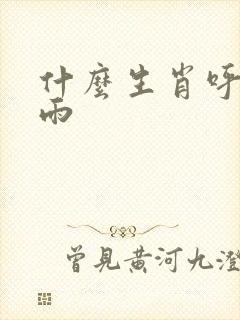 什麼生肖呼
雨
曾見黃河九澄